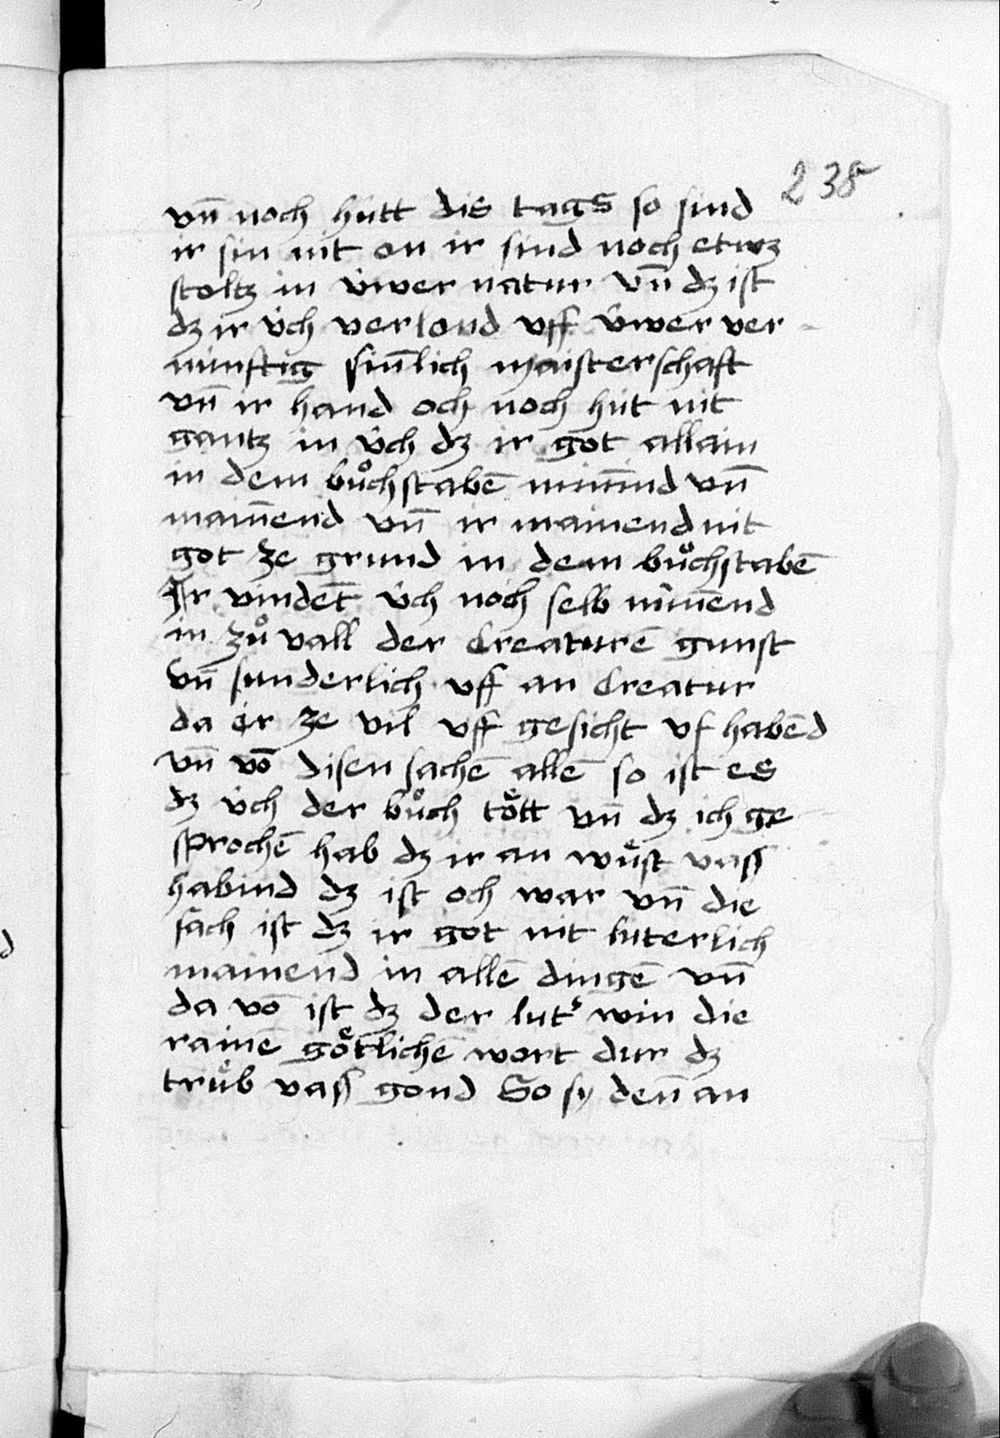 238
vn̄ noch hútt dis tags so sind
ir sin nit on ir sind noch etwz
stoltz in úwer natur vn̄ dz ist
dz ir úch verlond vff úwer ver-
núnftig sin̄lich maisterschaft
vn̄ ir hand och noch hút nit
gantz in úch dz ir got allain
in dem bůchstabē min̄ind vn̄
main̄end vn̄ ir mainend nit
got ze grund in dem bůchstabē
Ir vindēt úch noch selb minēnd
in zůvall der Creaturē gunst
vn̄ sunderlich vff an Creatur
da ir ze vil vff gesicht vf habēd
vn̄ vō disen sachē allē so ist es
dz úch der bůch tôtt vn̄ dz ich ge
sprochē hab dz ir an wůst vass
habind dz ist och war vn̄ die
sach ist dz ir got nit luterlich
mainend in allē dingē vn̄
da vō ist dz der lutʼ win die
rainē gôtlichē wort dur dz
trůb vass gond So sy den̄ an